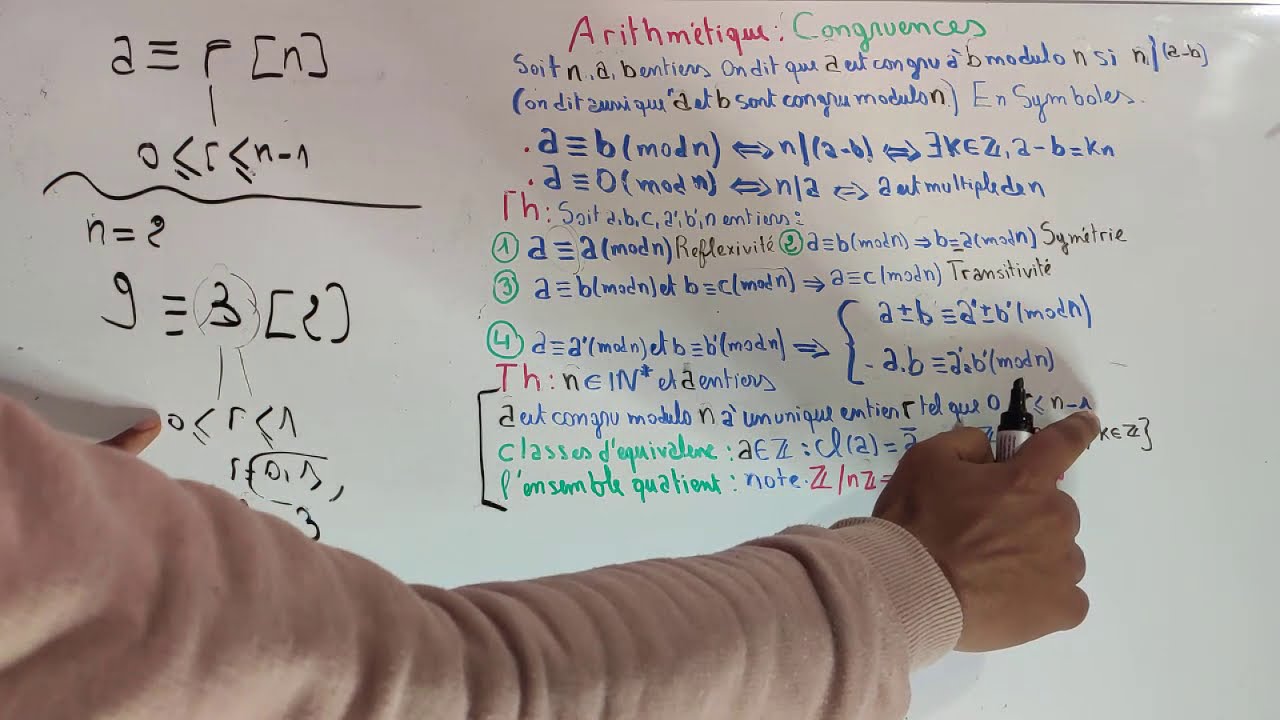 a ≡ r [n]
0 ≤ r ≤ n-1
n = 2
9 ≡ 3 [2]
0 ≤ r ≤ 1
r = 0, 1,
3
Arithmétique : Congruences
Soit n, a, b entiers On dit que a est congru à b modulo n si n/(a-b)
(on dit aussi que "a et b sont congru modulo n.) En Symboles.
. a ≡ b (mod n) ⟺ n/(a-b) ⟺ ∃k∈ℤ, a-b = kn
. a ≡ 0 (mod n) ⟺ n/a ⟺ a est multiple de n
Th : Soit a, b, c, a', b', n entiers :
① a ≡ a (mod n) Reflexivité ② a ≡ b (mod n) ⇒ b ≡ a (mod n) Symétrie
③ a ≡ b (mod n) et b ≡ c (mod n) ⇒ a ≡ c (mod n) Transitivité
④ a ≡ a' (mod n) et b ≡ b' (mod n) ⇒ { a ± b ≡ a' ± b' (mod n)
- a.b ≡ a'.b' (mod n)
Th : n ∈ IN* et a entiers
a est congru modulo n à un unique entier r tel que 0 r ≤ n-1
classes d'équivalenc : a ∈ ℤ : cl(a) = a̅ k∈ℤ}
l'ensemble quatient : note. ℤ/nℤ =